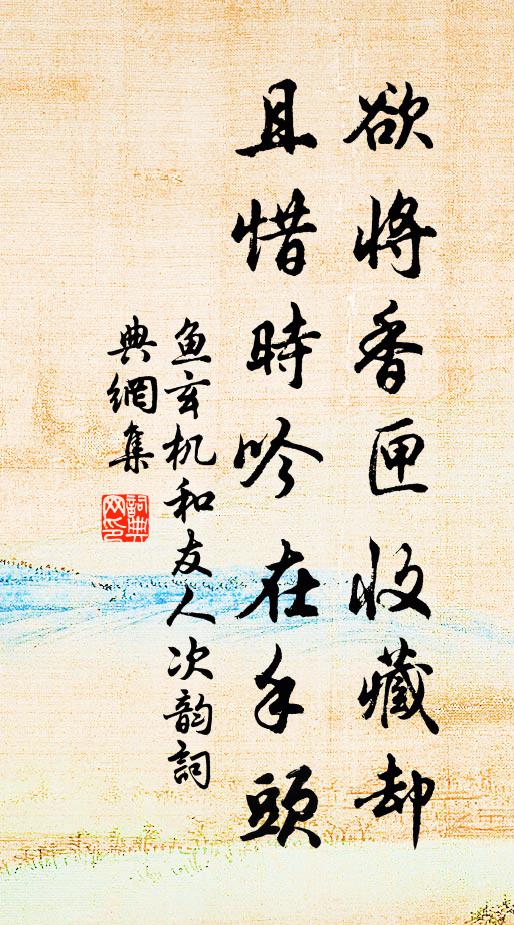 欲將香匣收藏却
且惜時吟在手頭
鱼玄机和友人次韵詞
典網集
詞典网印